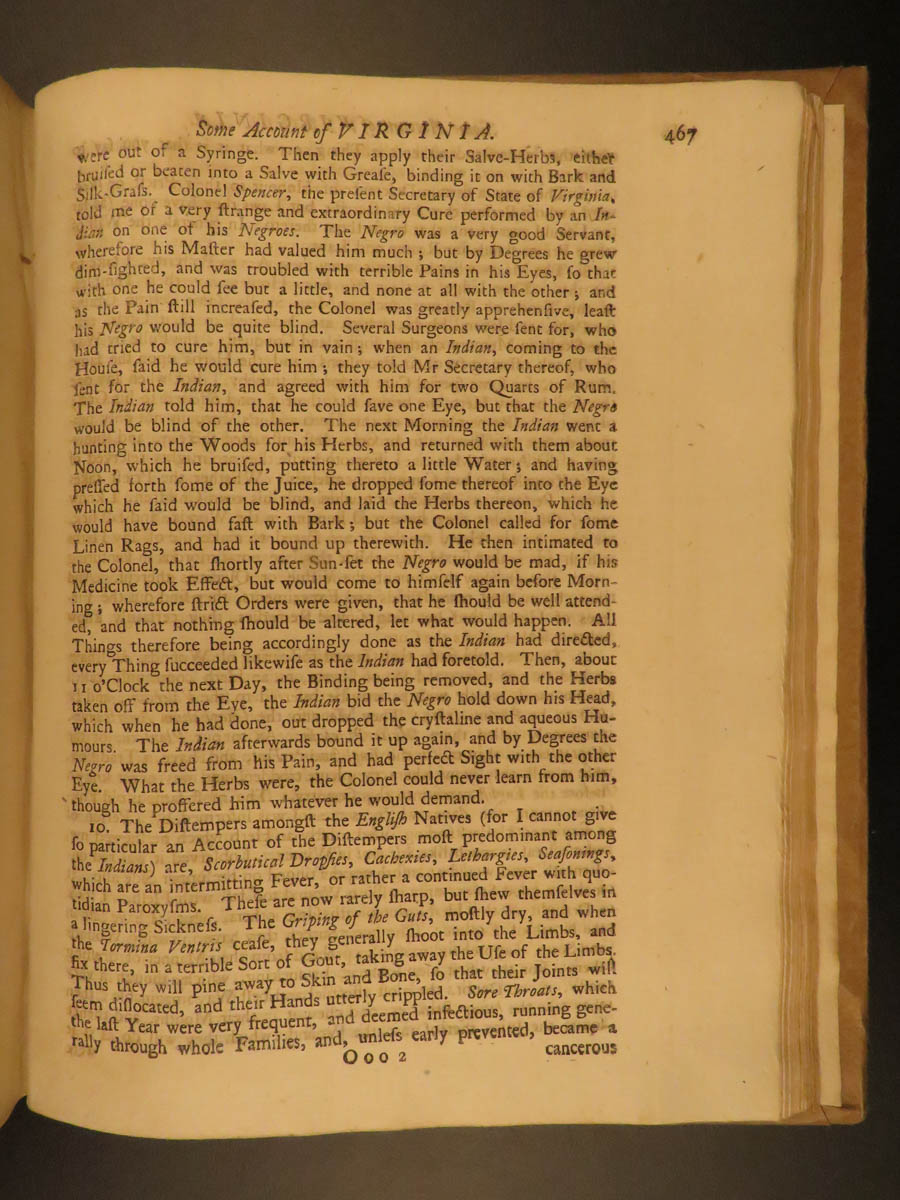 Some Account of VIRGINIA. 467
were out of a Syringe. Then they apply their Salve-Herbs, either
bruiſed or beaten into a Salve with Greaſe, binding it on with Bark and
Silk-Graſs. Colonel Spencer, the preſent Secretary of State of Virginia,
told me of a very ſtrange and extraordinary Cure performed by an In-
dian on one of his Negroes. The Negro was a very good Servant,
wherefore his Maſter had valued him much; but by Degrees he grew
dim-ſighted, and was troubled with terrible Pains in his Eyes, ſo that
with one he could ſee but a little, and none at all with the other; and
as the Pain ſtill increaſed, the Colonel was greatly apprehenſive, leaſt
his Negro would be quite blind. Several Surgeons were ſent for, who
had tried to cure him, but in vain; when an Indian, coming to the
Houſe, ſaid he would cure him; they told Mr Secretary thereof, who
ſent for the Indian, and agreed with him for two Quarts of Rum.
The Indian told him, that he could ſave one Eye, but that the Negro
would be blind of the other. The next Morning the Indian went a
hunting into the Woods for his Herbs, and returned with them about
Noon, which he bruiſed, putting thereto a little Water; and having
preſſed forth ſome of the Juice, he dropped ſome thereof into the Eye
which he ſaid would be blind, and laid the Herbs thereon, which he
would have bound faſt with Bark; but the Colonel called for ſome
Linen Rags, and had it bound up therewith. He then intimated to
the Colonel, that ſhortly after Sun-ſet the Negro would be mad, if his
Medicine took Effect, but would come to himſelf again before Morn-
ing; wherefore ſtrict Orders were given, that he ſhould be well attend-
ed, and that nothing ſhould be altered, let what would happen. All
Things therefore being accordingly done as the Indian had directed,
every Thing ſucceeded likewiſe as the Indian had foretold. Then, about
11 o'Clock the next Day, the Binding being removed, and the Herbs
taken off from the Eye, the Indian bid the Negro hold down his Head,
which when he had done, out dropped the cryſtaline and aqueous Hu-
mours. The Indian afterwards bound it up again, and by Degrees the
Negro was freed from his Pain, and had perfect Sight with the other
Eye. What the Herbs were, the Colonel could never learn from him,
though he proffered him whatever he would demand.
10. The Diſtempers amongſt the Engliſh Natives (for I cannot give
ſo particular an Account of the Diſtempers moſt predominant among
the Indians) are, Scorbutical Dropſies, Cachexies, Lethargies, Seaſonings,
which are an intermitting Fever, or rather a continued Fever with quo-
tidian Paroxyſms. Theſe are now rarely ſharp, but ſhew themſelves in
a lingering Sickneſs. The Griping of the Guts, moſtly dry, and when
the Tormina Ventris ceaſe, they generally ſhoot into the Limbs, and
fix there, in a terrible Sort of Gout, taking away the Uſe of the Limbs.
Thus they will pine away to Skin and Bone, ſo that their Joints will
ſeem diſlocated, and their Hands utterly crippled. Sore Throats, which
the laſt Year were very frequent, and deemed infectious, running gene-
rally through whole Families, and, unleſs early prevented, became a
Ooo 2 cancerous